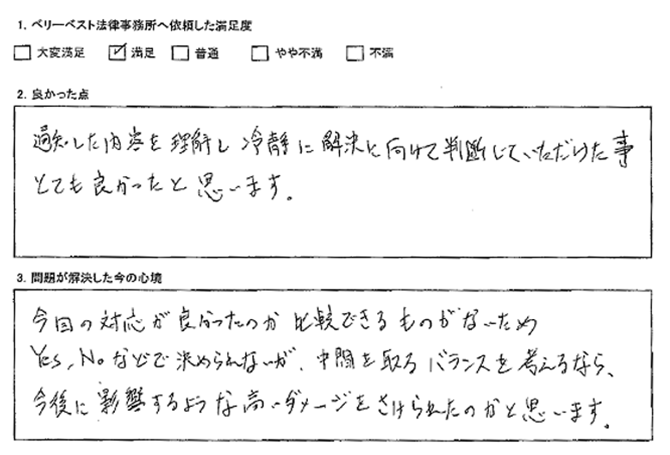 1. ベリーベスト法律事務所へ依頼した満足度
□ 大変満足 ☑ 満足 □ 普通 □ やや不満 □ 不満
2. 良かった点
通知した内容を理解し冷静に解決に向けて判断していただけた事
とても良かったと思います。
3. 問題が解決した今の心境
今回の対応が良かったのか比較できるものがないため
Yes, Noなどで決められないが、中間を取るバランスを考えるなら、
今後に影響するような高いダメージをさけられたのかと思います。